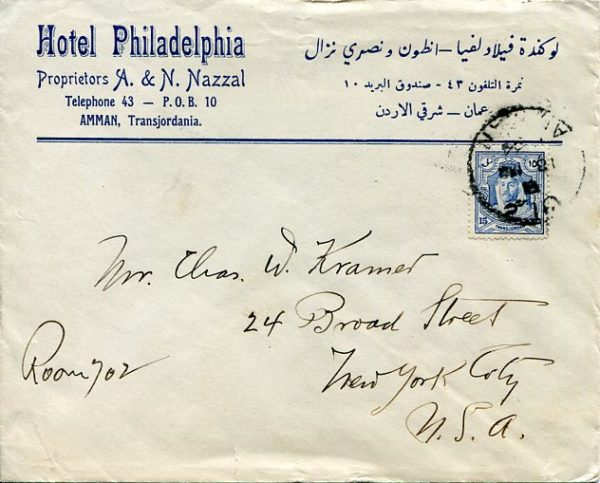 Hotel Philadelphia
Proprietors A. & N. Nazzal
Telephone 43 — P.O.B. 10
AMMAN, Transjordania.
لوكندة فيلادلفيا — انطون ونصري نزال
نمرة التلفون ٤٣ - صندوق البريد ١٠
عمان — شرقي الاردن
15
Mr. Chas. W. Kramer
24 Broad Street
New York City
U. S. A.
Room 702